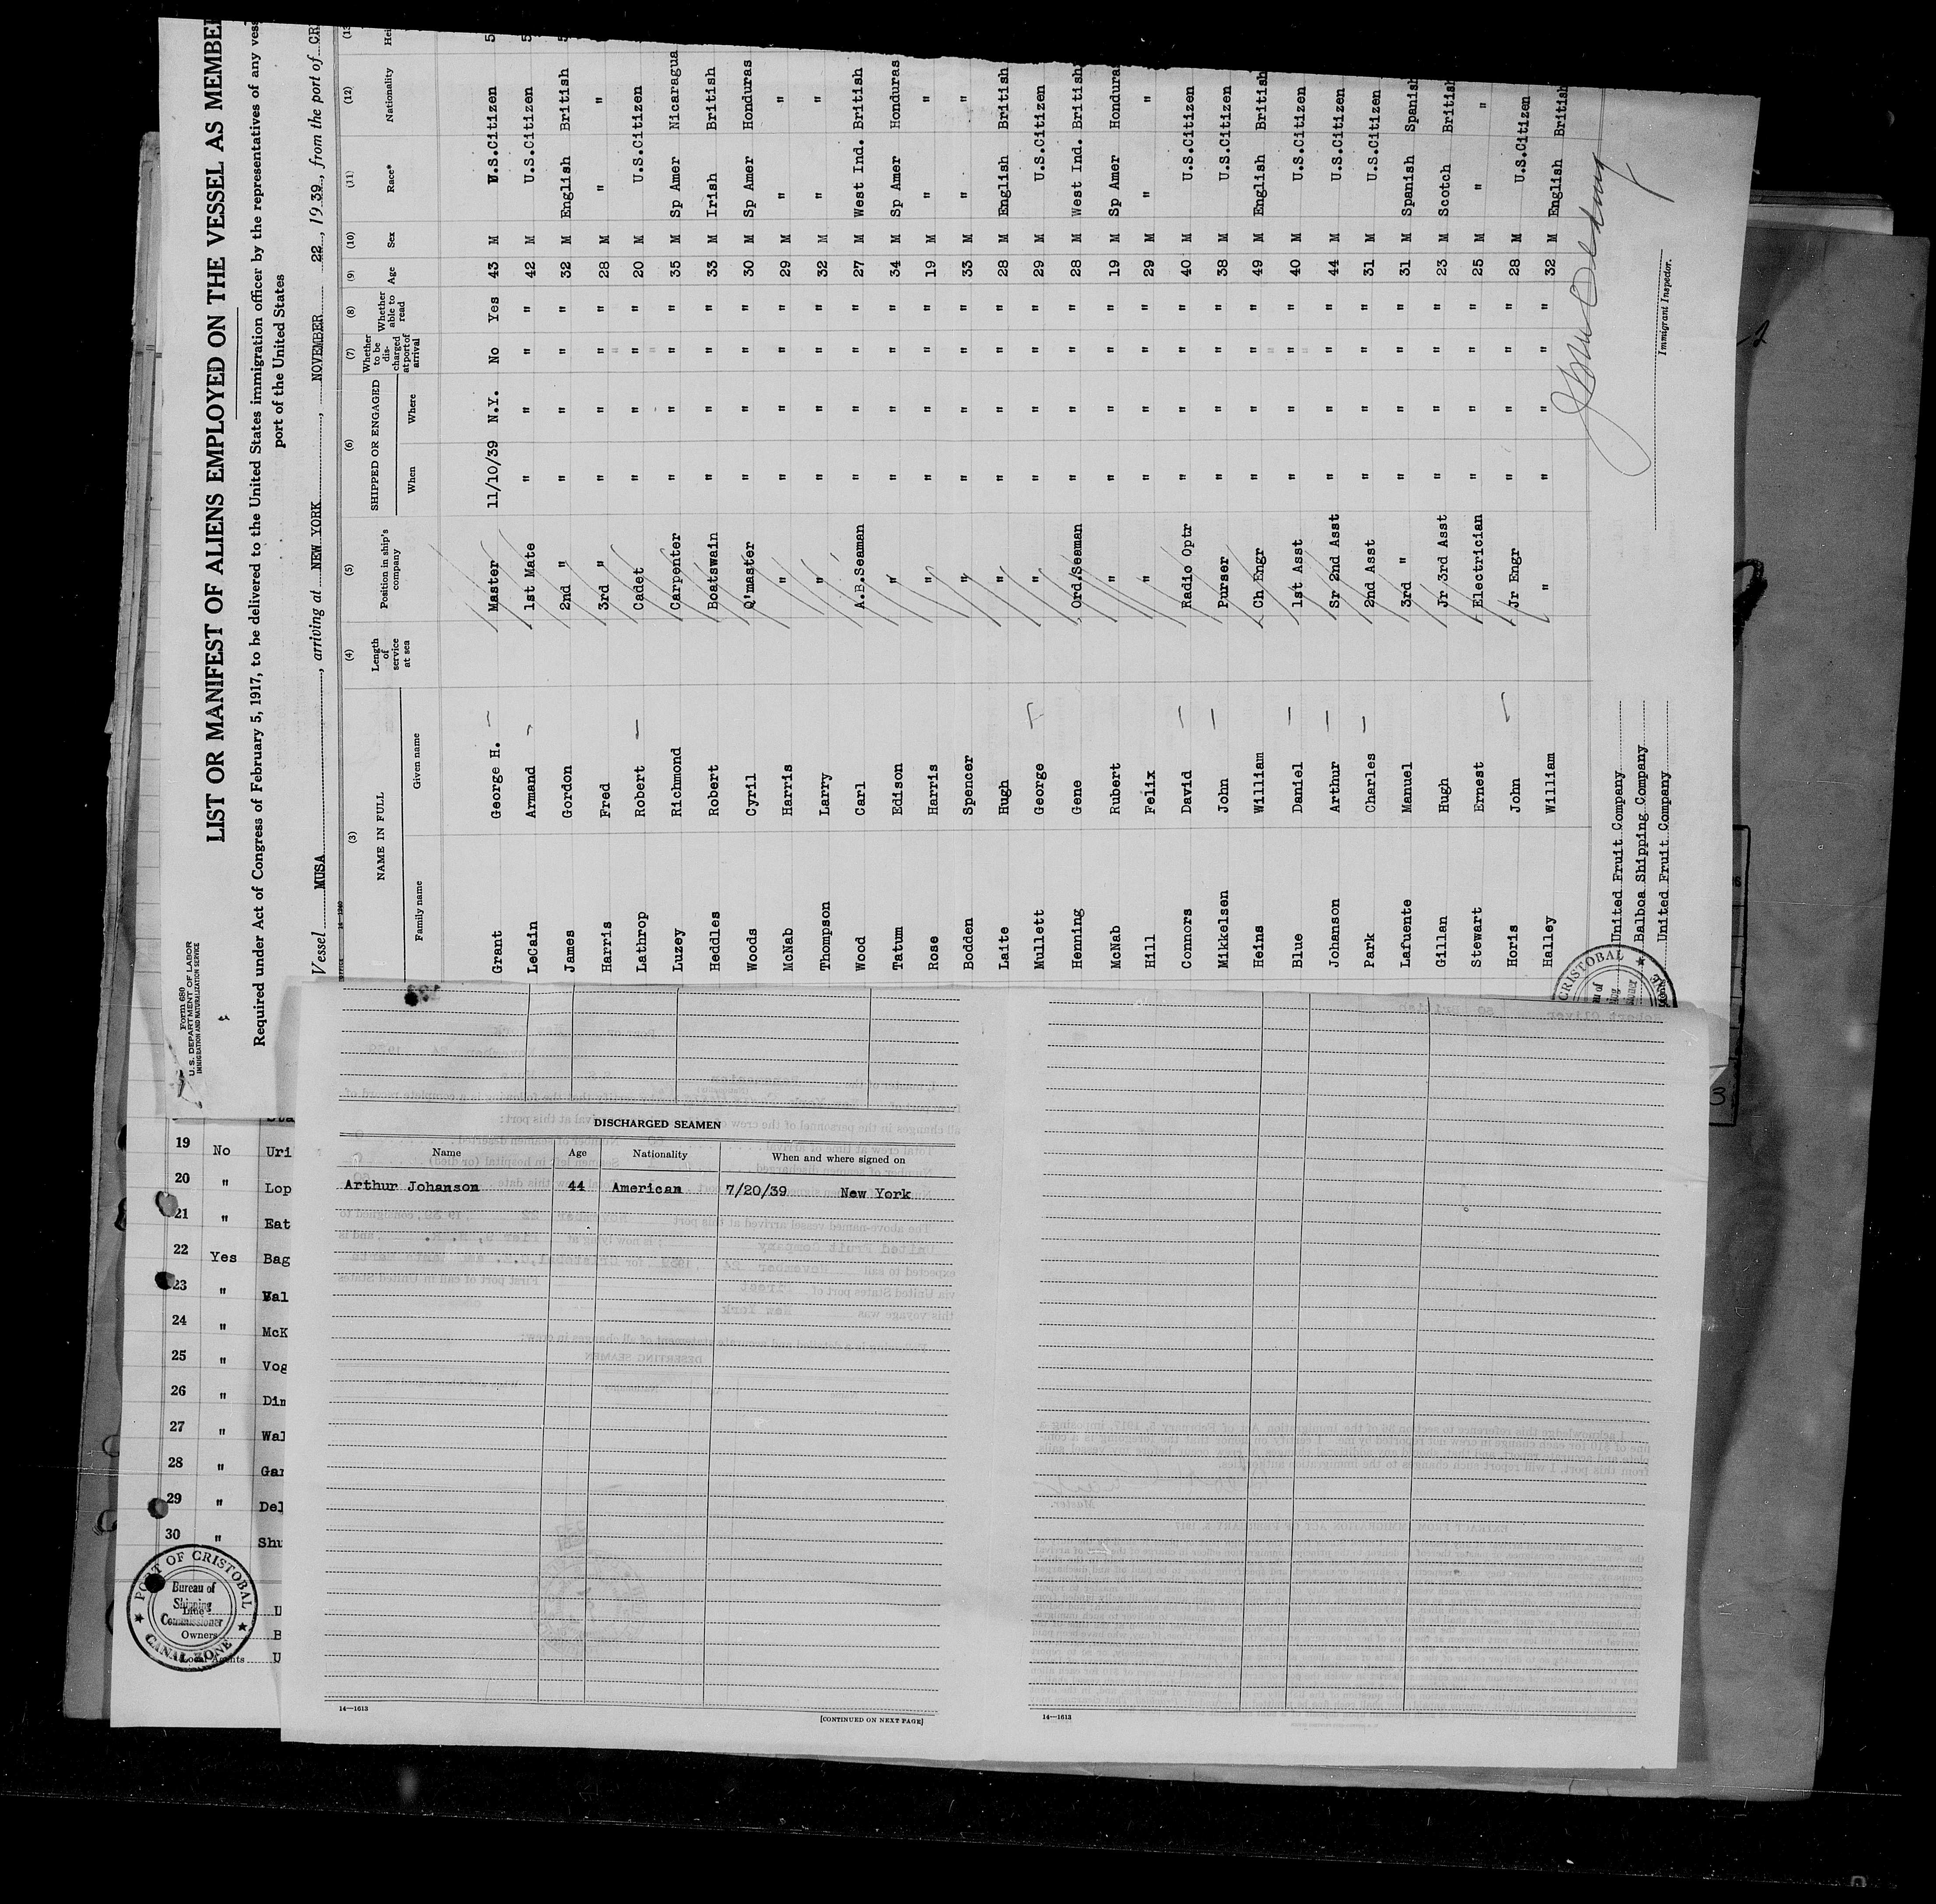 Form 680
U. S. DEPARTMENT OF LABOR
IMMIGRATION AND NATURALIZATION SERVICE
LIST OR MANIFEST OF ALIENS EMPLOYED ON THE VESSEL AS MEMBE
Required under Act of Congress of February 5, 1917, to be delivered to the United States immigration officer by the representatives of any vess
port of the United States
Vessel MUSA, arriving at NEW YORK, NOVEMBER 22, 1939, from the port of CR
(3) (4) (5) (6) (7) (8) (9) (10) (11) (12)
NAME IN FULL Length of service at sea Position in ship's company SHIPPED OR ENGAGED Whether to be discharged at port of arrival Whether able to read Age Sex Race* Nationality Hei
Family name Given name When Where
Grant George H. Master 11/10/39 N.Y. No Yes 43 M U.S.Citizen 5
LeCain Armand 1st Mate " " " " 42 M U.S.Citizen 5
James Gordon 2nd " " " " " 32 M English British 5
Harris Fred 3rd " " " " " 28 M " "
Lathrop Robert Cadet " " " " 20 M U.S.Citizen
Luzey Richmond Carpenter " " " " 35 M Sp Amer Nicaragua
Heddles Robert Boatswain " " " " 33 M Irish British
Woods Cyril Q'master " " " " 30 M Sp Amer Honduras
McNab Harris " " " " " 29 M " "
Thompson Larry " " " " " 32 M " "
Wood Carl A.B.Seaman " " " " 27 M West Ind. British
Tatum Edison " " " " " 34 M Sp Amer Honduras
Rose Harris " " " " " 19 M " "
Bodden Spencer " " " " " 33 M " "
Laite Hugh " " " " " 28 M English British
Mullett George " " " " " 29 M U.S.Citizen
Henning Gene Ord.Seaman " " " " 28 M West Ind. British
McNab Rubert " " " " " 19 M Sp Amer Honduras
Hill Felix " " " " " 29 M " "
Connors David Radio Optr " " " " 40 M U.S.Citizen
Mikkelsen John Purser " " " " 38 M U.S.Citizen
Heins William Ch Engr " " " " 49 M English British
Blue Daniel 1st Asst " " " " 40 M U.S.Citizen
Johanson Arthur Sr 2nd Asst " " " " 44 M U.S.Citizen
Park Charles 2nd Asst " " " " 31 M U.S.Citizen
Lafuente Manuel 3rd " " " " " 31 M Spanish Spanish
Gillan Hugh Jr 3rd Asst " " " " 23 M Scotch British
Stewart Ernest Electrician " " " " 25 M " "
Horis John Jr Engr " " " " 28 M U.S.Citizen
Halley William " " " " " 32 M English British
United Fruit Company
Balboa Shipping Company
United Fruit Company
Immigrant Inspector.
CRISTOBAL
19 No Uri
20 " Lop
21 " Eat
22 Yes Bag
23 " Val
24 " McK
25 " Vog
26 " Din
27 " Wal
28 " Gar
29 " Del
30 " Shu
PORT OF CRISTOBAL
Bureau of
Shipping
Commissioner
CANAL ZONE
Line
Owners
Local Agents
DISCHARGED SEAMEN
Name Age Nationality When and where signed on
Arthur Johanson 44 American 7/20/39 New York
14—1613
[CONTINUED ON NEXT PAGE]
14—1613